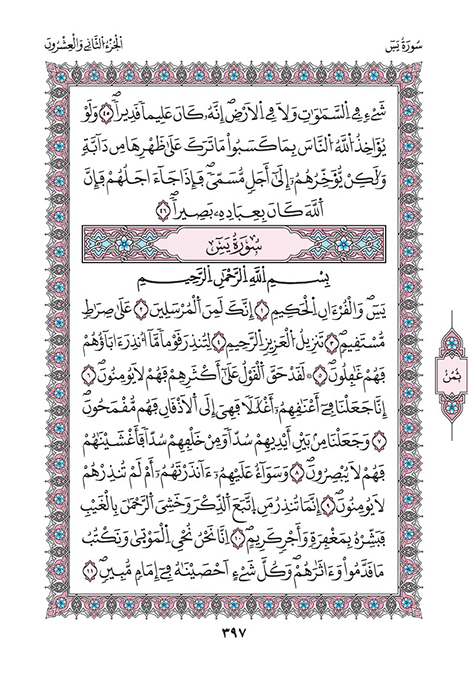 سُورَةُ يَسِٓ
اَلْجُزْءُ الثَّانِي وَالْعِشْرُونَ
شَےْءٖ فِے اِ۬لسَّمَٰوَٰتِ وَلَا فِے اِ۬لَارْضِۖ إِنَّهُۥ كَانَ عَلِيماٗ قَدِيراٗۖ ٤٥ وَلَوْ
يُؤَاخِذُ اُ۬للَّهُ اُ۬لنَّاسَ بِمَا كَسَبُواْ مَا تَرَكَ عَلَىٰ ظَهْرِهَا مِن دَآبَّةٖ
وَلَٰكِنْ يُّؤَخِّرُهُمُۥٓ إِلَىٰٓ أَجَلٖ مُّسَمّيٗۖ فَإِذَا جَآءَ اجَلُهُمْ فَإِنَّ
اَ۬للَّهَ كَانَ بِعِبَادِهِۦ بَصِيراٗۖ ٤٦
سُورَةُ يَسِٓ
بِسْمِ اِ۬للَّهِ اِ۬لرَّحْمَٰنِ اِ۬لرَّحِيمِ
يَسِٓ وَالْقُرْءَانِ اِ۬لْحَكِيمِ ١ إِنَّكَ لَمِنَ اَ۬لْمُرْسَلِينَ ٢ عَلَىٰ صِرَٰطٖ
مُّسْتَقِيمٖۖ ٣ تَنزِيلُ اُ۬لْعَزِيزِ اِ۬لرَّحِيمِ ٤ لِتُنذِرَ قَوْماٗ مَّآ أُنذِرَ ءَابَآؤُهُمْ
فَهُمْ غَٰفِلُونَۖ ٥ ۞ لَقَدْ حَقَّ اَ۬لْقَوْلُ عَلَىٰٓ أَكْثَرِهِمْ فَهُمْ لَا يُومِنُونَۖ ٦
إِنَّا جَعَلْنَا فِےٓ أَعْنَٰقِهِمُۥٓ أَغْلَٰلاٗ فَهِيَ إِلَى اَ۬لَاذْقَانِ فَهُم مُّقْمَحُونَۖ
٧ وَجَعَلْنَا مِنۢ بَيْنِ أَيْدِيهِمْ سُدّاٗ وَمِنْ خَلْفِهِمْ سُدّاٗ فَأَغْشَيْنَٰهُمْ
فَهُمْ لَا يُبْصِرُونَۖ ٨ وَسَوَآءٌ عَلَيْهِمُۥٓ ءَآنذَرْتَهُمُۥٓ أَمْ لَمْ تُنذِرْهُمْ
لَا يُومِنُونَۖ ٩ إِنَّمَا تُنذِرُ مَنِ اِ۪تَّبَعَ اَ۬لذِّكْرَ وَخَشِيَ اَ۬لرَّحْمَٰنَ بِالْغَيْبِ
فَبَشِّرْهُ بِمَغْفِرَةٖ وَأَجْرٖ كَرِيمٍۖ ١٠ اِنَّا نَحْنُ نُحْيِ اِ۬لْمَوْتَىٰ وَنَكْتُبُ
مَا قَدَّمُواْ وَءَاثَٰرَهُمْۖ وَكُلَّ شَےْءٍ اَحْصَيْنَٰهُ فِےٓ إِمَامٖ مُّبِينٖۖ ١١
ثُمُن
٣٩٧